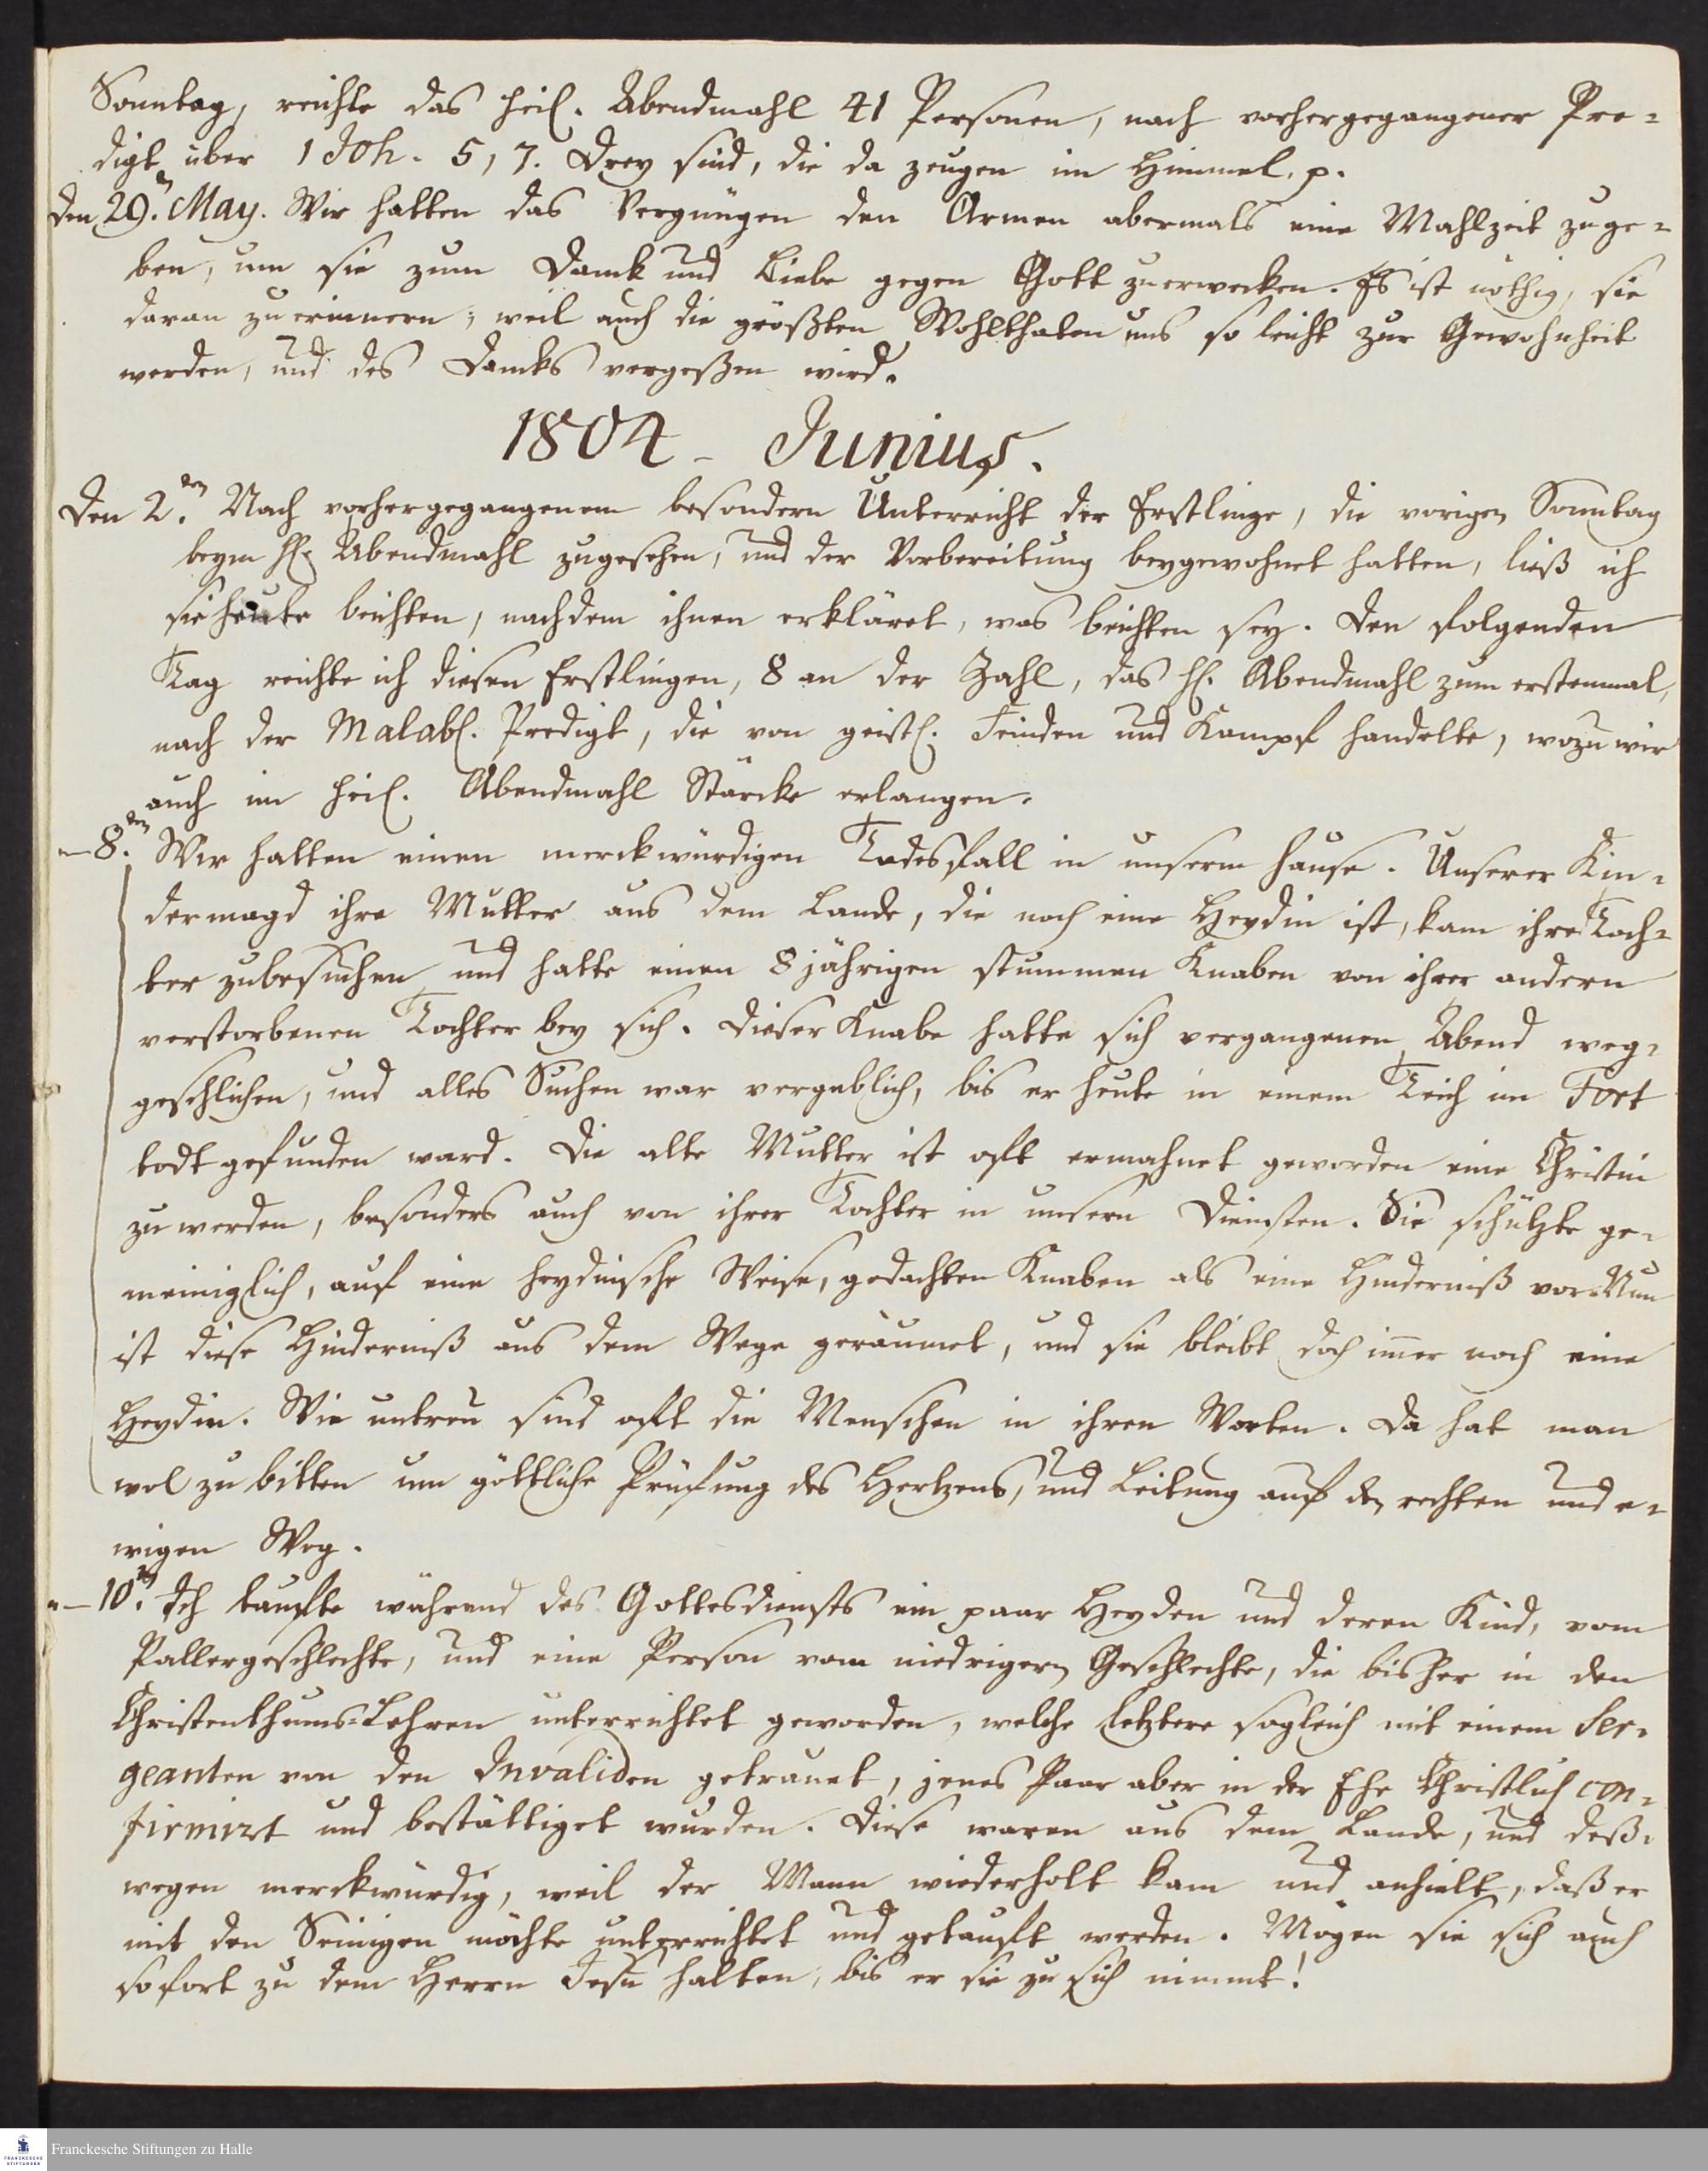 Sonntag, reichte das heil. Abendmahl 41 Personen, nach vorhergegangener Pre-
digt über 1 Joh. 5, 7. Drey sind, die da zeugen im Himmel. p.
Den 29.n May. Wir hatten das Vergnügen den Armen abermals eine Mahlzeit zu ge-
ben, um sie zum Dank und Liebe gegen Gott zu erwecken. Es ist nöthig, sie
daran zu erinnern; weil auch die größten Wohlthaten uns so leicht zur Gewohnheit
werden, und des Danks vergeßen wird.
1804 - Junius.
Den 2.ten Nach vorhergegangenem besondern Unterricht der Erstlinge, die vorigen Sonntag
beym hl. Abendmahl zugesehen, und der Vorbereitung beygewohnet hatten, ließ ich
sie heute beichten, nachdem ihnen erkläret, was beichten sey. Den folgenden
Tag reichte ich diesen Erstlingen, 8 an der Zahl, das hl. Abendmahl zum erstenmal,
nach der Malabl. Predigt, die von geistl. Feinden und Kampf handelte, wozu wir
auch im heil. Abendmahl Stärcke erlangen.
- 8.ten Wir hatten einen merckwürdigen Todesfall in unserm Hause. Unserer Kin-
dermagd ihre Mutter aus dem Lande, die noch eine Heydin ist, kam ihre Toch-
ter zu besuchen, und hatte einen 8 jährigen stummen Knaben von ihrer andern
verstorbenen Tochter bey sich. Dieser Knabe hatte sich vergangenen Abend weg-
geschlichen, und alles Suchen war vergeblich, bis er heute in einem Teich im Fort
todt gefunden ward. Die alte Mutter ist oft ermahnet geworden eine Christin
zu werden, besonders auch von ihrer Tochter in unsern Diensten. Sie schützte ge-
meiniglich, auf eine heydnische Weise, gedachten Knaben als eine Hinderniß vor. Nun
ist diese Hinderniß aus dem Wege geräumet, und sie bleibt doch im̅er noch eine
Heydin. Wie untreu sind oft die Menschen in ihren Worten. Da hat man
wol zu bitten um göttliche Prüfung des Hertzens, und Leitung auf den rechten und e-
wigen Weg.
- 10.n Ich taufte während des Gottesdiensts ein paar Heyden und deren Kind, vom
Pallergeschlechte, und eine Person vom niedrigern Geschlechte, die bisher in den
Christenthums-Lehren unterrichtet geworden, welche letztere sogleich mit einem Ser-
geanten von den Invaliden getrauet, jenes Paar aber in der Ehe Christlich con-
firmirt und bestättiget wurden. Diese waren aus dem Lande, und deß-
wegen merckwürdig, weil der Mann wiederholt kam und anhielt, daß er
mit den Seinigen möchte unterrichtet und getauft werden. Mögen sie sich auch
so fort zu dem Herrn Jesu halten, bis er sie zu sich nimmt!
Franckesche Stiftungen zu Halle